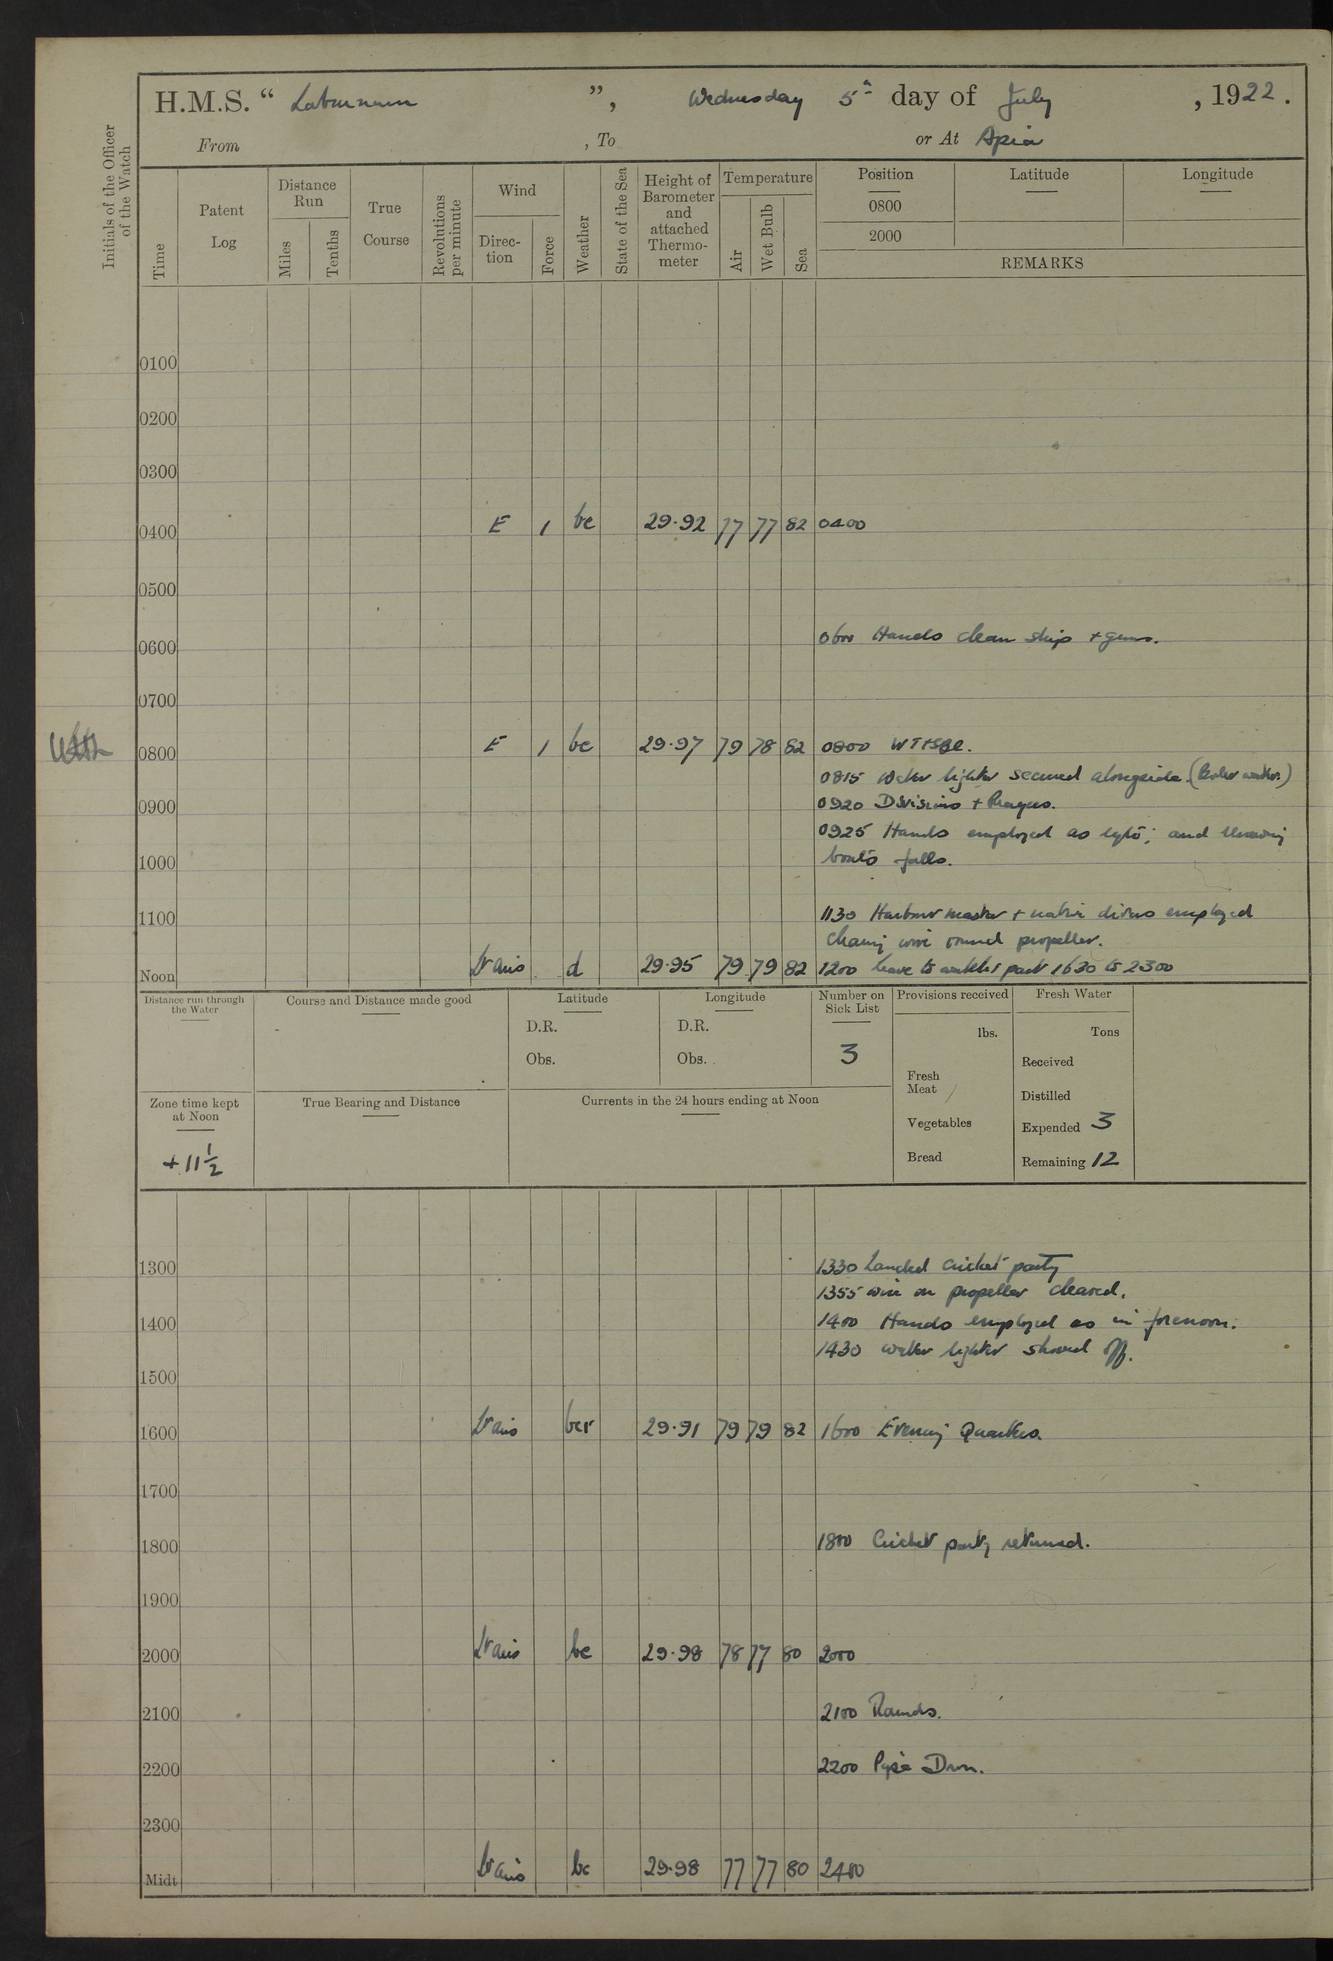 H.M.S. “ Laburnum ”, Wednesday 5th day of July , 1922.
From , To or At Apia
Initials of the Officer of the Watch
Time
Patent Log
Distance Run
Miles
Tenths
True Course
Revolutions per minute
Wind
Direction
Force
Weather
State of the Sea
Height of Barometer and attached Thermometer
Temperature
Air
Wet Bulb
Sea
Position
0800
2000
Latitude
Longitude
REMARKS
0100
0200
0300
0400 E 1 bc 29·92 77 77 82 0400
0500
0600 0600 Hands clean ship + guns.
0700
0800 E 1 bc 29·97 79 78 82 0800
0815 Water lighter secured alongside. (Boiler water.)
0900 0920 Divisions + Prayers.
0925 Hands employed as reqd; and
1000 boats falls.
1100 1130 Harbour master + native divers employed
wire round propeller.
Noon Lt airs d 29·95 79 79 82 1200 Leave to watch & part 1630 to 2300
Distance run through the Water
Course and Distance made good
Latitude
D.R.
Obs.
Longitude
D.R.
Obs.
Number on Sick List
3
Provisions received
lbs.
Fresh Meat
Vegetables
Bread
Fresh Water
Tons
Received
Distilled
Expended 3
Remaining 12
Zone time kept at Noon
+ 11 1/2
True Bearing and Distance
Currents in the 24 hours ending at Noon
1300 1330 Landed cricket party
1355 wire on propeller cleared.
1400 1400 Hands employed as in forenoon.
1430 water lighter shoved off.
1500
1600 Lt airs bcr 29·91 79 79 82 1600 Evening Quarters.
1700
1800 1800 Cricket party returned.
1900
2000 Lt airs bc 29·98 78 77 80 2000
2100 2100 Rounds.
2200 2200 Pipe Down.
2300
Midt Lt airs bc 29·98 77 77 80 2400